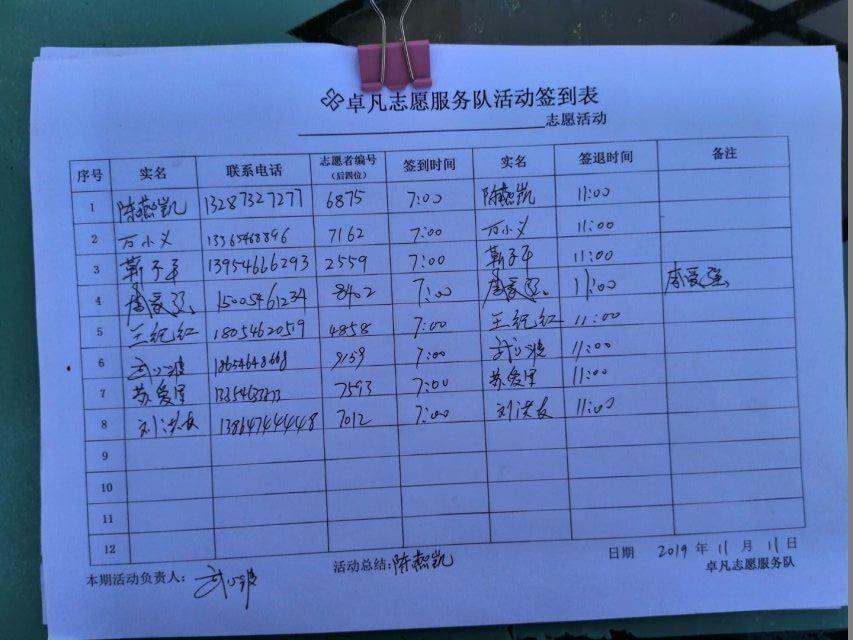 卓凡志愿服务队活动签到表
志愿活动
序号 实名 联系电话 志愿者编号（后四位） 签到时间 实名 签退时间 备注
1 陈燕凯 13287327277 6875 7:00 陈燕凯 11:00
2 万小义 7162 7:00 万小义 11:00
3 靳子平 13954666293 2559 7:00 靳子平 11:00
4 15005461234 8402 7:00 11:00
5 王纪红 4858 7:00 王纪红 11:00
6 9159 7:00 11:00
7 苏爱军 7593 7:00 苏爱军 11:00
8 刘洪友 13864744448 7012 7:00 刘洪友 11:00
9
10
11
12
日期 2019年11月11日
本期活动负责人： 活动总结:陈燕凯 卓凡志愿服务队